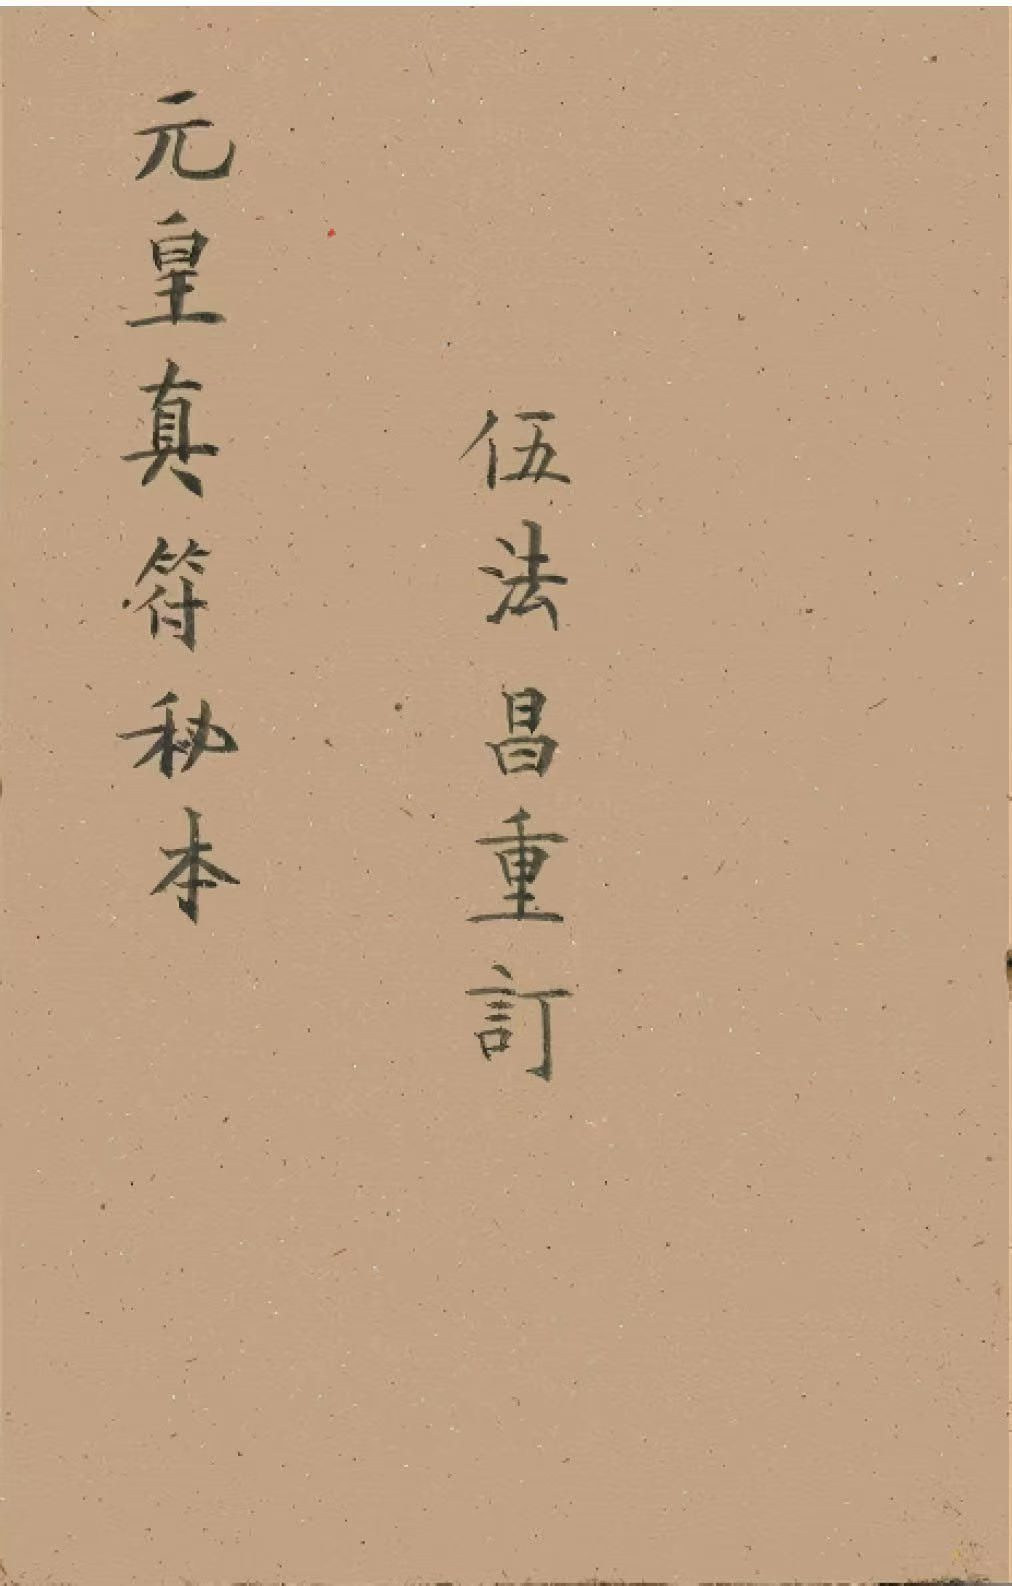 伍法昌重訂
元皇真符秘本